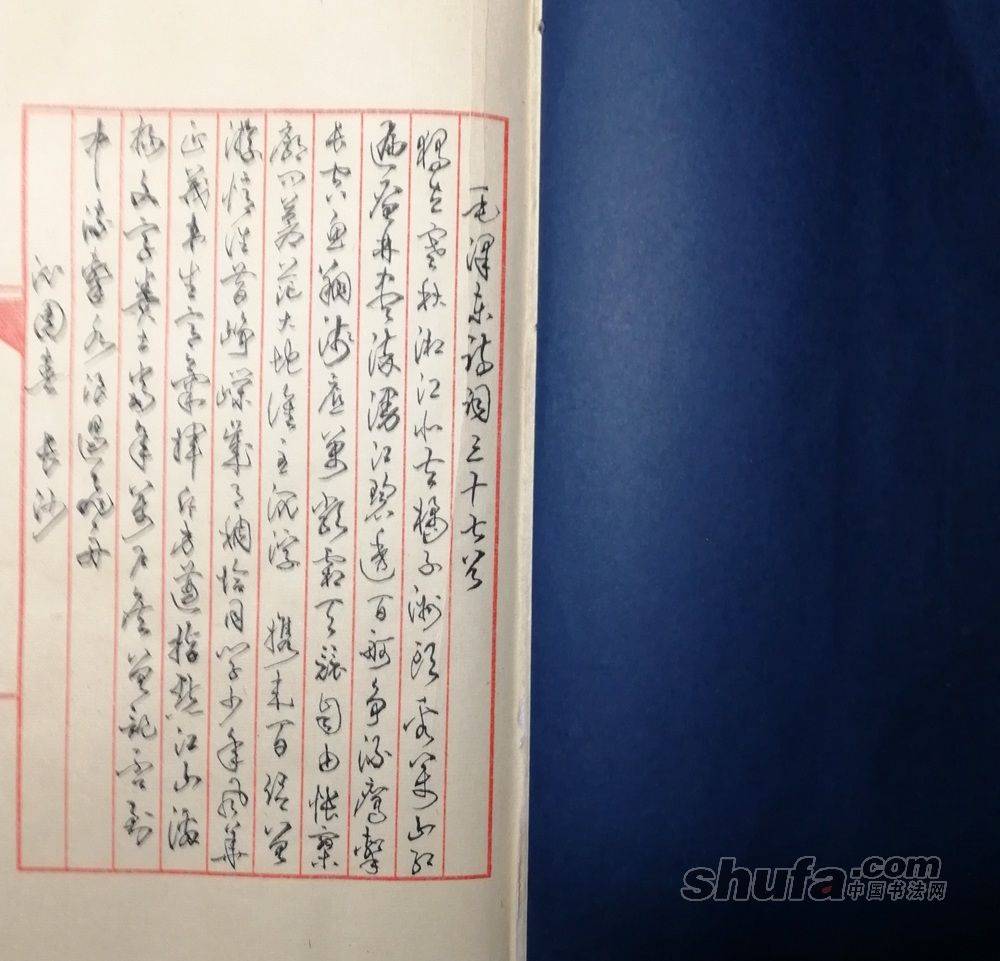 毛泽东诗词三十七首
独立寒秋湘江北去橘子洲头看万山红
遍层林尽染漫江碧透百舸争流鹰击
长空鱼翔浅底万类霜天竞自由怅寥
廓问苍茫大地谁主沉浮 携来百侣曾
游忆往昔峥嵘岁月稠恰同学少年风华
正茂书生意气挥斥方遒指点江山激
扬文字粪土当年万户侯曾记否到
中流击水浪遏飞舟
沁园春 长沙
shufa.com
中国书法网